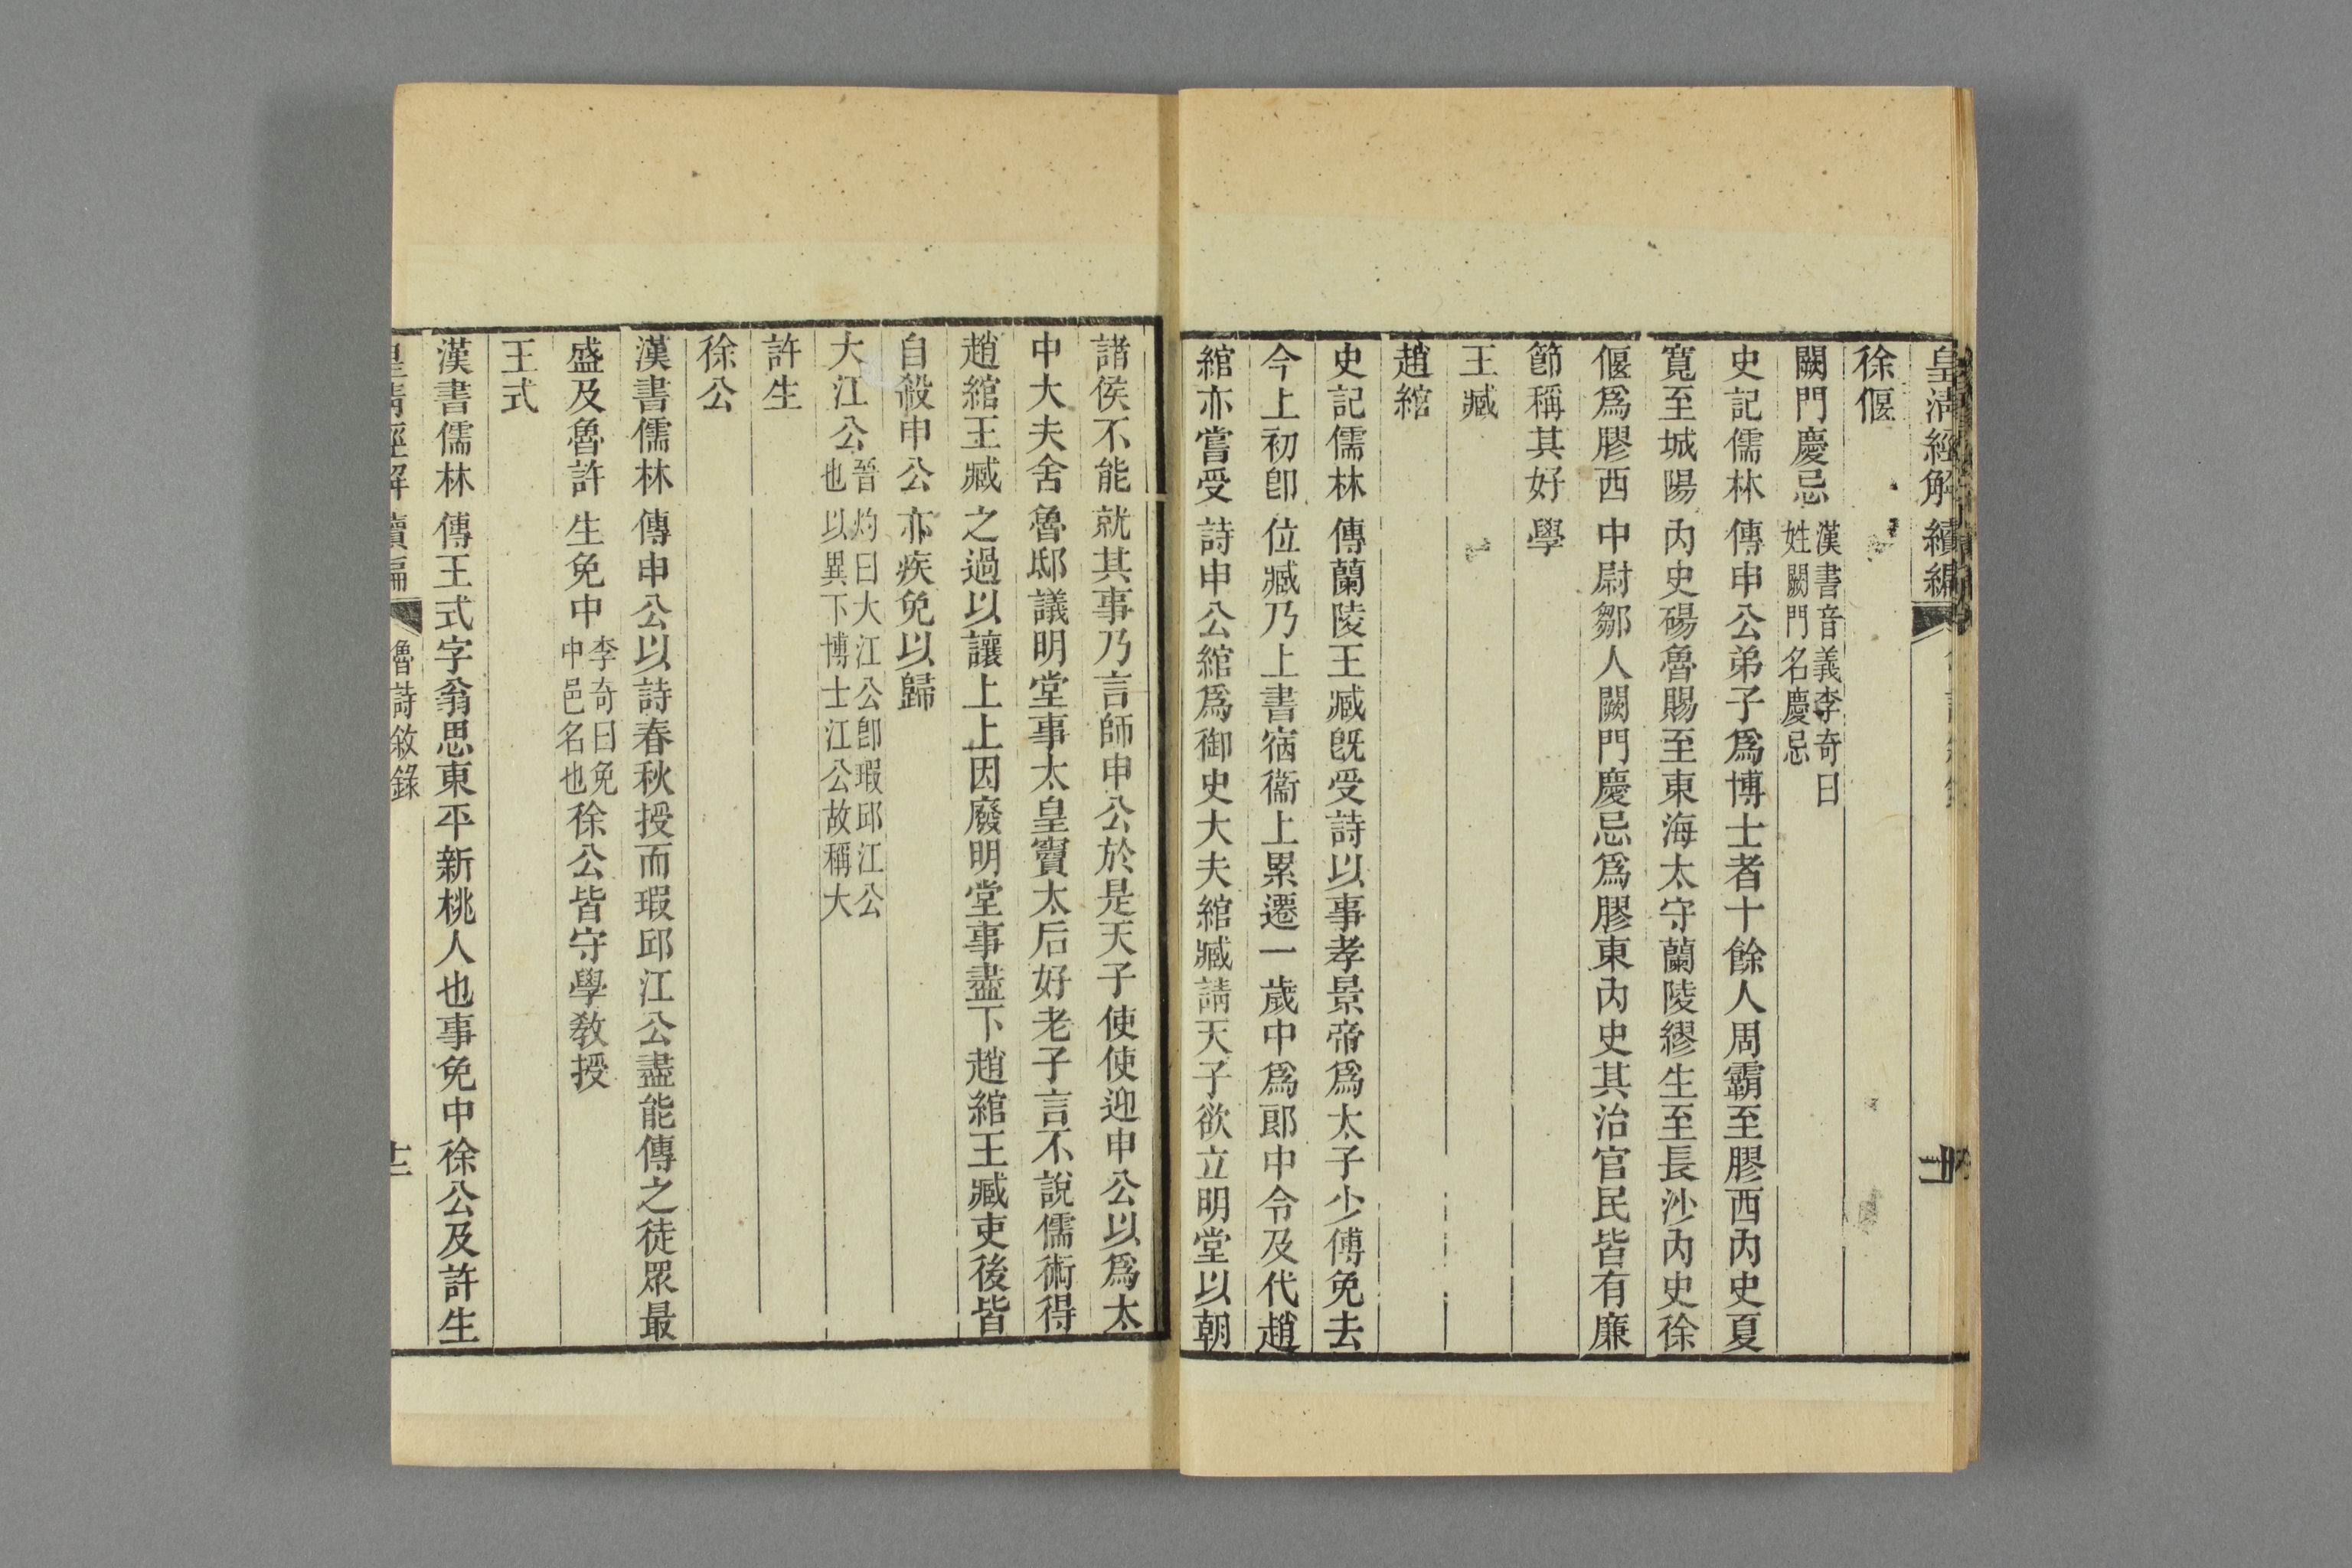 皇清經解續編
徐偃
闕門慶忌漢書音義李奇曰姓闕門名慶忌
史記儒林傳申公弟子爲博士者十餘人周霸至膠西內史夏
寬至城陽內史碭魯賜至東海太守蘭陵繆生至長沙內史徐
偃爲膠西中尉鄒人闕門慶忌爲膠東內史其治官民皆有廉
節稱其好學
王臧
趙綰
史記儒林傳蘭陵王臧旣受詩以事孝景帝爲太子少傅免去
今上初卽位臧乃上書宿衞上累遷一歲中爲郎中令及代趙
綰亦嘗受詩申公綰爲御史大夫綰臧請天子欲立明堂以朝
諸侯不能就其事乃言師申公於是天子使使迎申公以爲太
中大夫舍魯邸議明堂事太皇竇太后好老子言不說儒術得
趙綰王臧之過以讓上上因廢明堂事盡下趙綰王臧吏後皆
自殺申公亦疾免以歸
大江公晉灼曰大江公卽瑕邱江公也以異下博士江公故稱大
許生
徐公
漢書儒林傳申公以詩春秋授而瑕邱江公盡能傳之徒眾最
盛及魯許生免中李奇曰免中邑名也徐公皆守學敎授
王式
漢書儒林傳王式字翁思東平新桃人也事免中徐公及許生
皇清經解續編 魯詩敘錄 十二